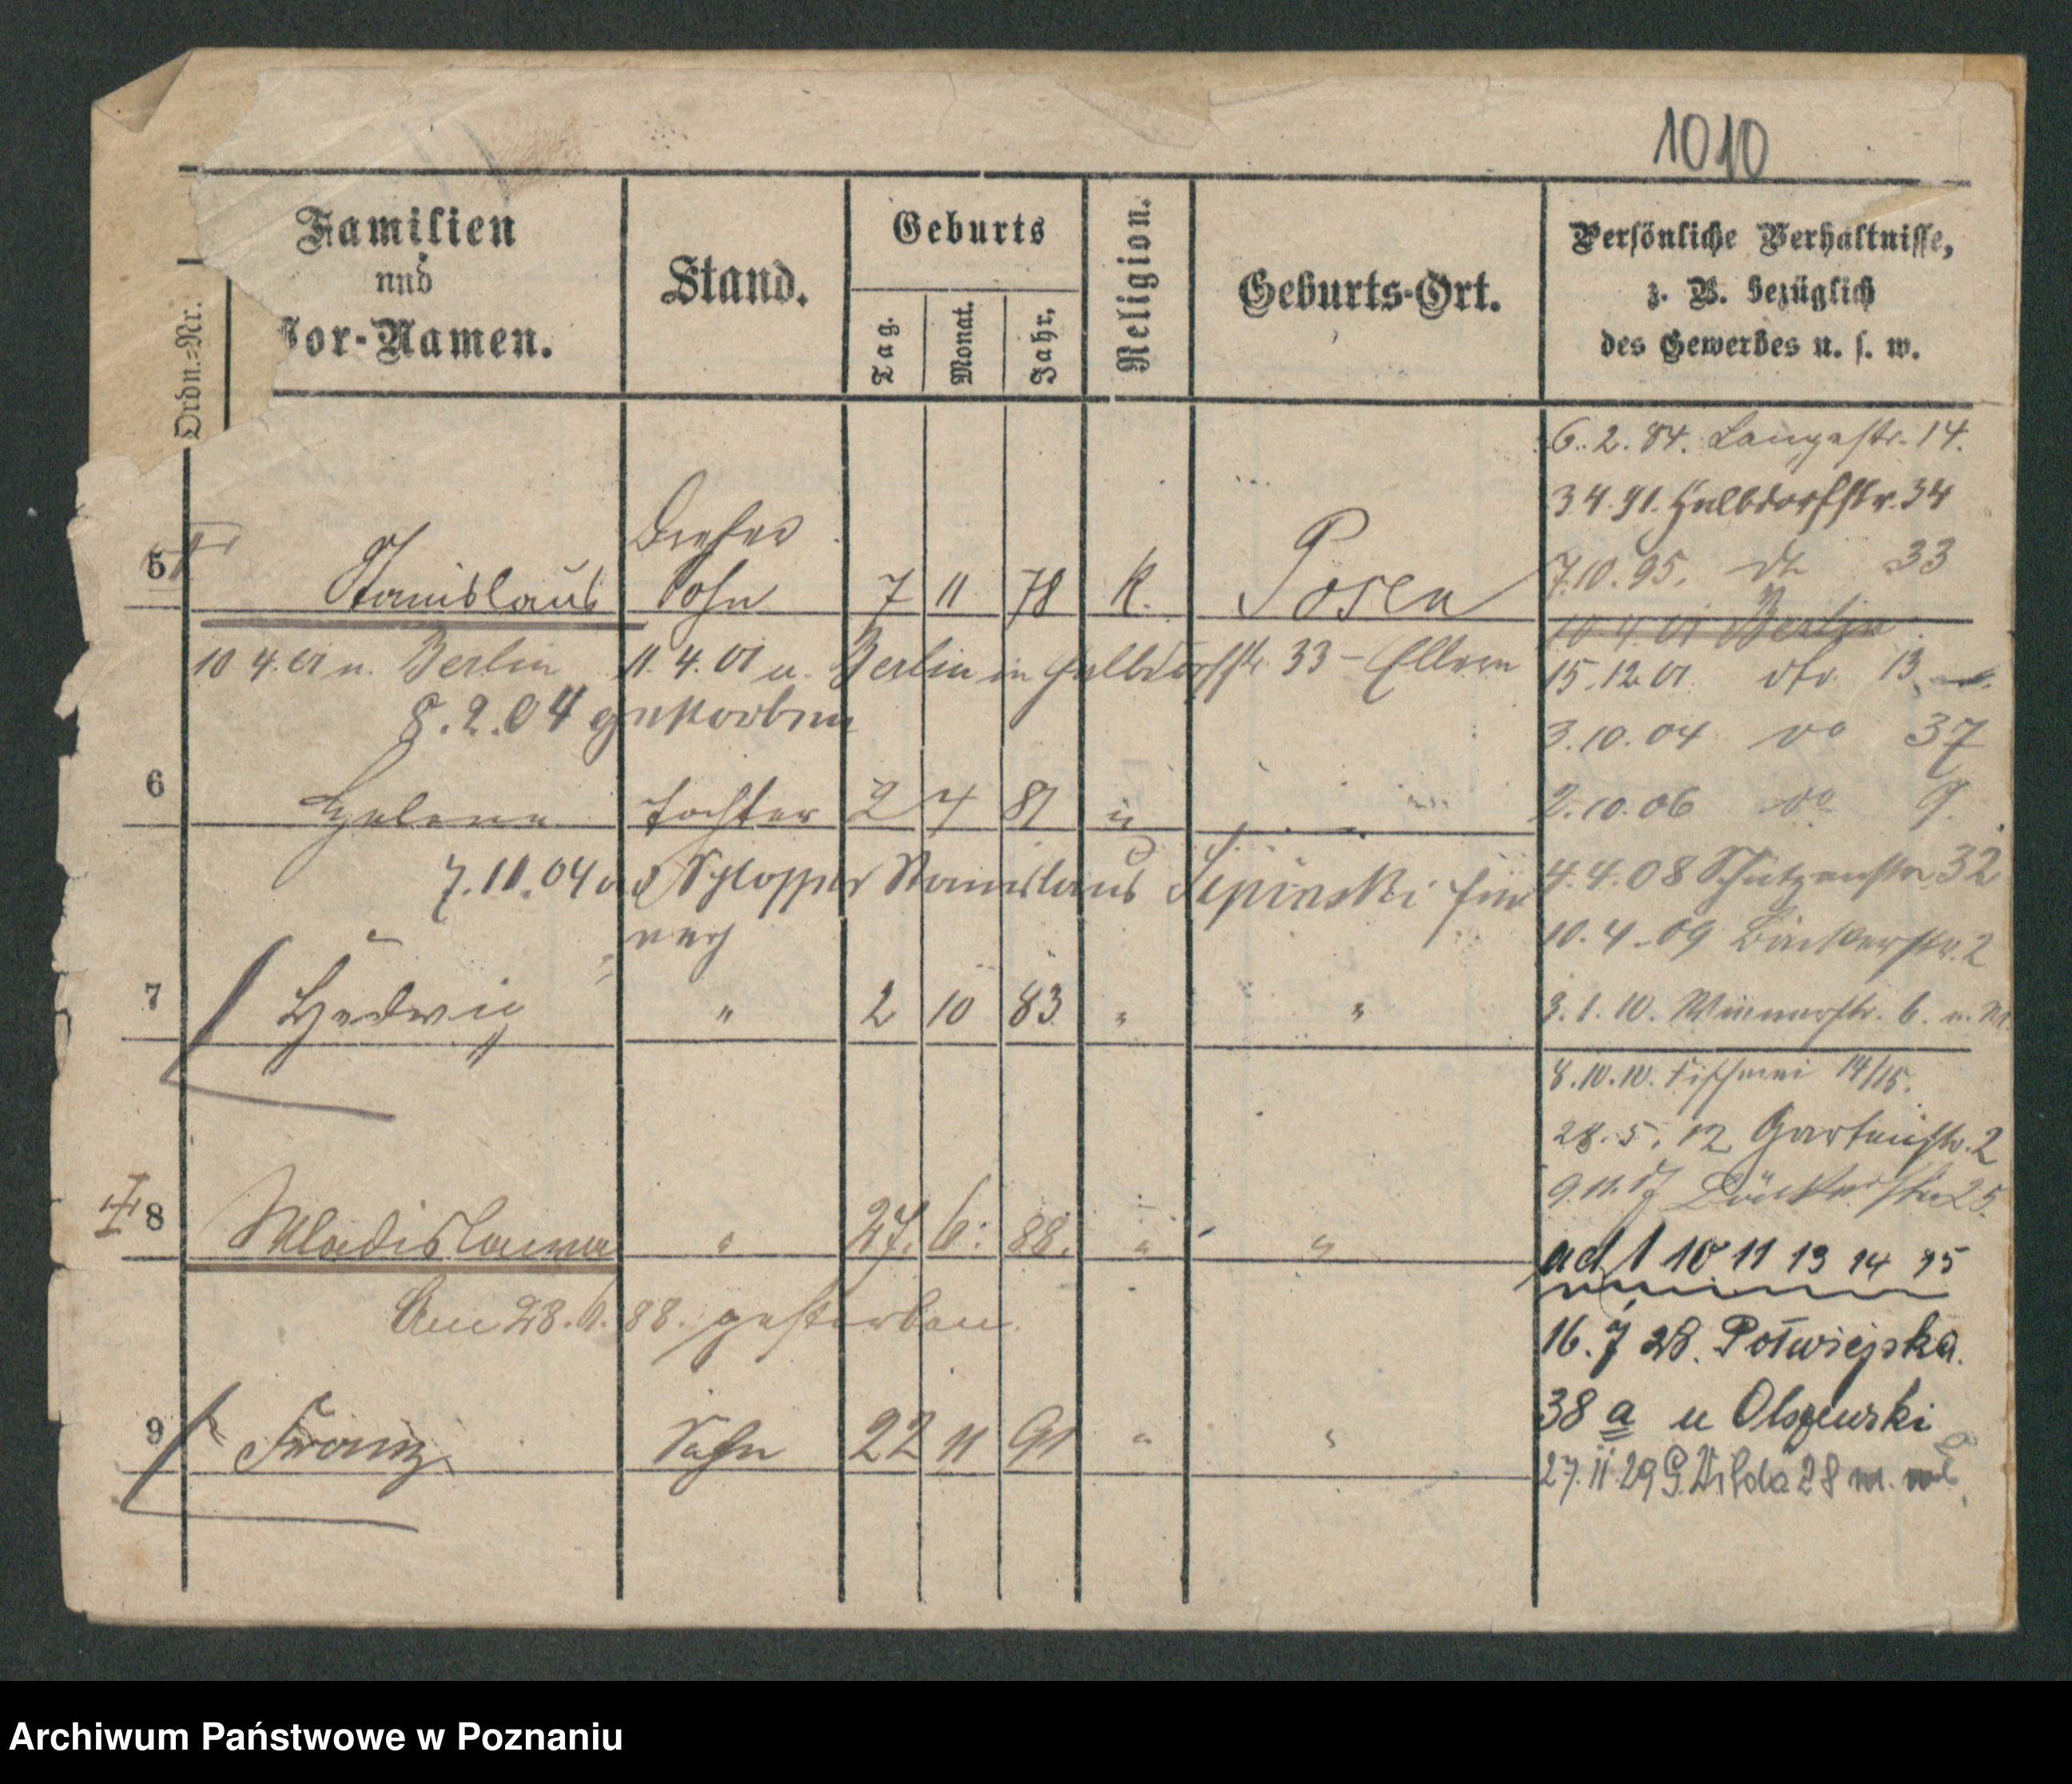 1010
Ordn.=Nr.
Familien
und
Vor-Namen.
Stand.
Geburts
Tag.
Monat.
Jahr.
Religion.
Geburts-Ort.
Persönliche Verhältnisse,
z. B. bezüglich
des Gewerbes u. s. w.
6. 2. 84. Langestr. 14.
3 4. 91. Halbdorfstr. 34
7.10.95. do 33
10.4.01 Berlin
15.12.01. do 13
3.10.04 do 37
2.10.06 do 9.
4.4.08 Schützenstr. 32
10.4.09 Bäckerstr. 2
3.1.10. 6.
8.10.10. Fischerei 14/15.
28.5.12 Gartenstr. 2
9.11.17 Bäckerstr. 25.
ad 1 10 11 13 14 15
16.7 28. Półwiejska
38 a u Olszewski
27.11.29 G. Wilda 28 m.
5 Stanislaus Dreher Sohn 7 11 78 K. Posen
10 4.01 n. Berlin 11.4.01 v. Berlin in Halbdorfstr. 33 - Eltern
8.2.04 gestorben
6 Helene Tochter 2 4 81 "
7.11.04 Stanislaus hier
verh
7 Hedwig " 2 10 83 " "
8 Wladislawa " 27. 6. 88. " "
Am 28.6.88. gestorben.
9 Franz Sohn 22 11 91 " "
Archiwum Państwowe w Poznaniu